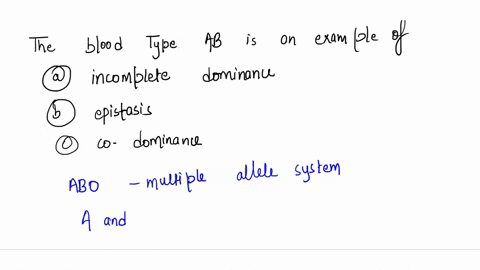 The blood Type AB is an example of
(a) incomplete dominance
(b) epistasis
(c) co-dominance
ABO - multiple allele system
A and